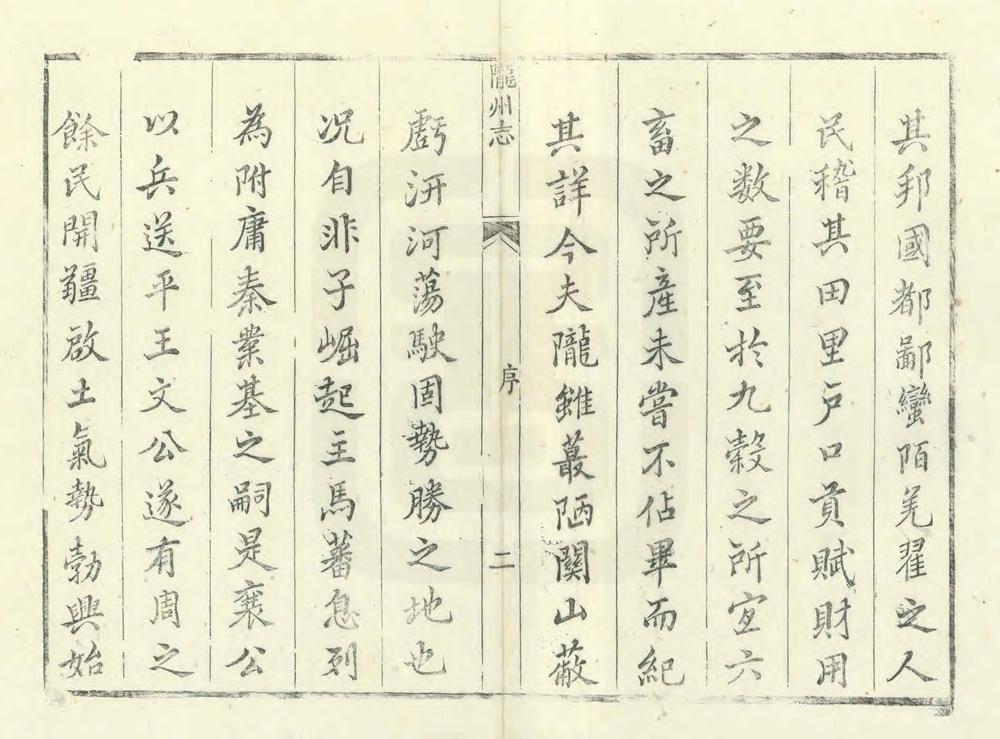 其邦國都鄙蠻陌羌翟之人
民稽其田里戶口貢賦財用
之數要至於九穀之所宜六
畜之所產未嘗不佔畢而紀
其詳今夫隴雖蕞陋關山蔽
隴州志
序
二
虧汧河蕩駛固勢勝之地也
况自非子崛起主馬蕃息列
為附庸秦業基之嗣是襄公
以兵送平王文公遂有周之
餘民開疆啟土氣勢勃興始